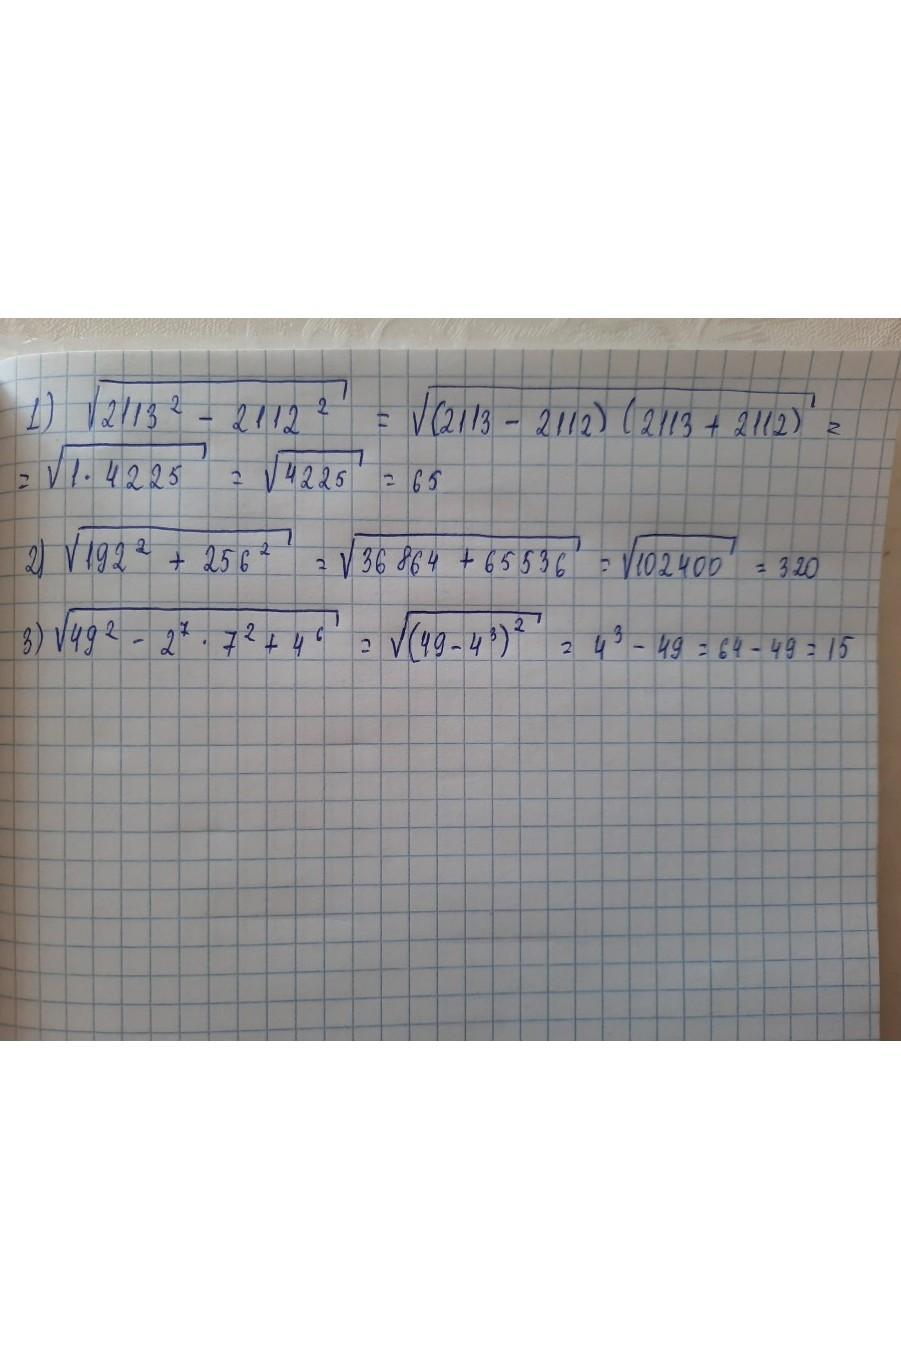 1) √(2113² - 2112²) = √((2113 - 2112)(2113 + 2112)) =
= √(1 · 4225) = √4225 = 65
2) √(192² + 256²) = √(36864 + 65536) = √102400 = 320
3) √(49² - 2⁷ · 7² + 4⁶) = √((49 - 4³)²) = 4³ - 49 = 64 - 49 = 15